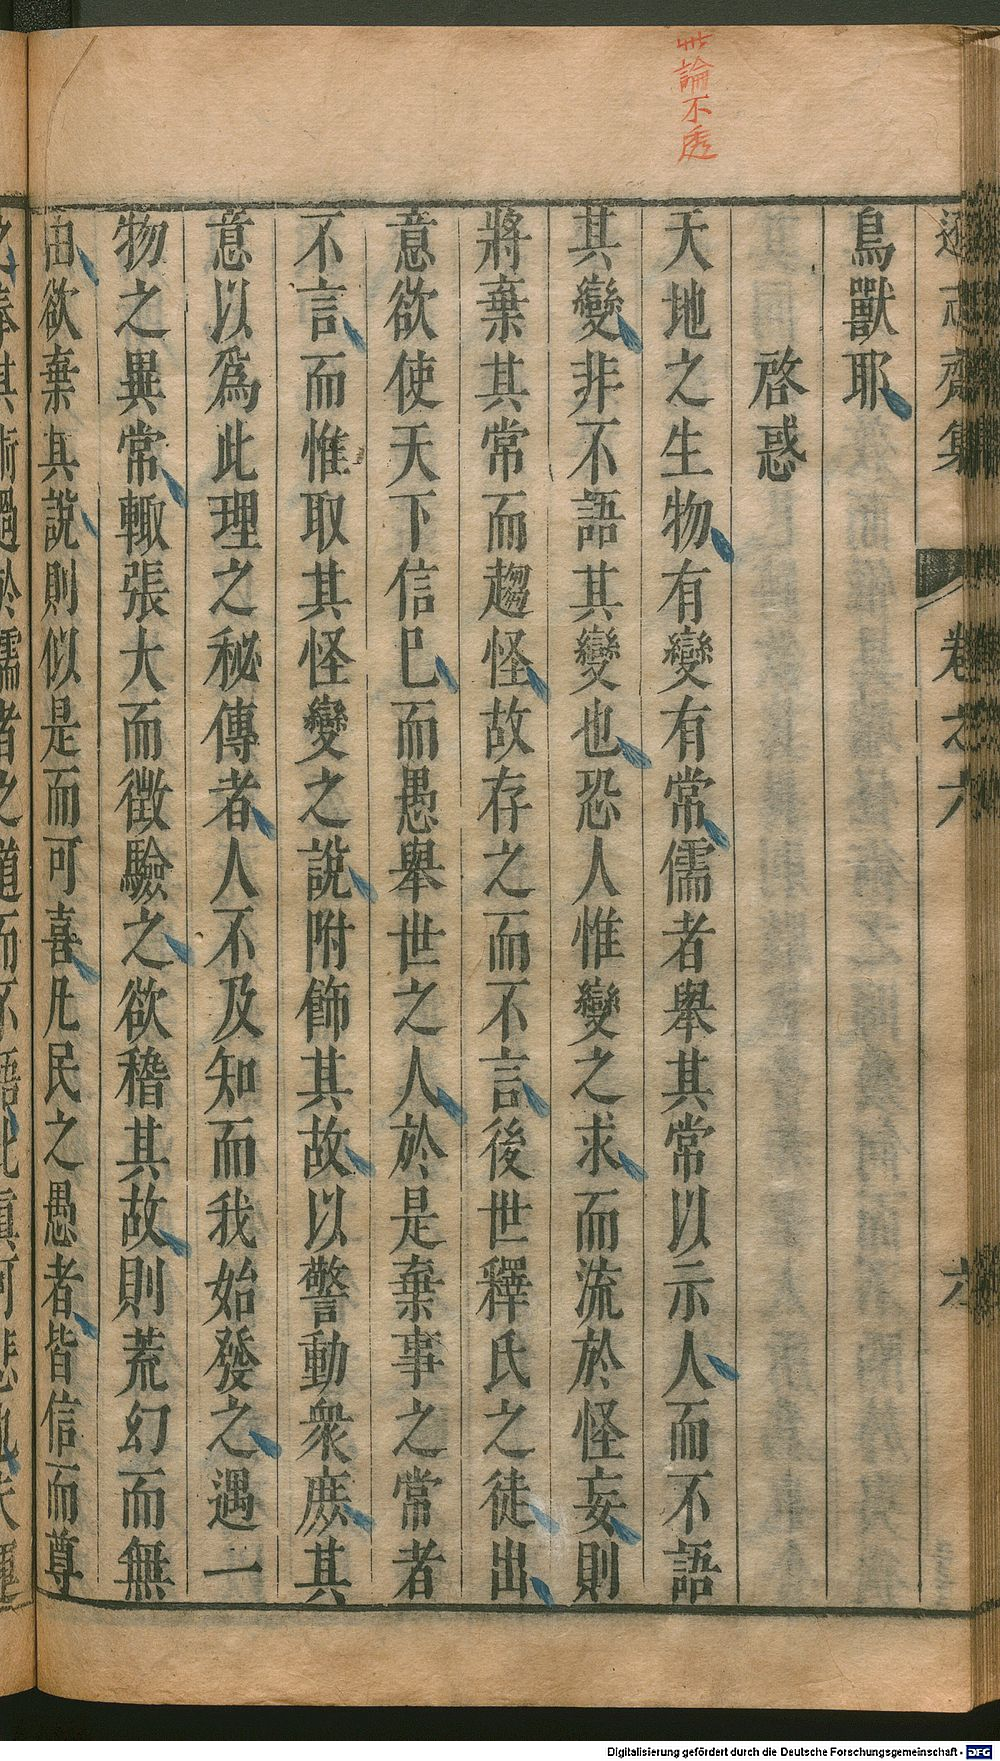 此論不透
遜志齋集 卷之六 六
鳥獸耶
啓惑
天地之生物有變有常儒者舉其常以示人而不語
其變非不語其變也恐人惟變之求而流於怪妄則
將棄其常而趨怪故存之而不言後世釋氏之徒出
意欲使天下信巳而愚舉世之人於是棄事之常者
不言而惟取其怪變之說附飾其故以警動衆庻其
意以爲此理之秘傳者人不及知而我始發之遇一
物之異常輙張大而徵驗之欲稽其故則荒幻而無
由欲棄其說則似是而可喜凡民之愚者皆信而尊
之奉其術過於儒者之道而不悟此真可悲也夫運
Digitalisierung gefördert durch die Deutsche Forschungsgemeinschaft - DFG